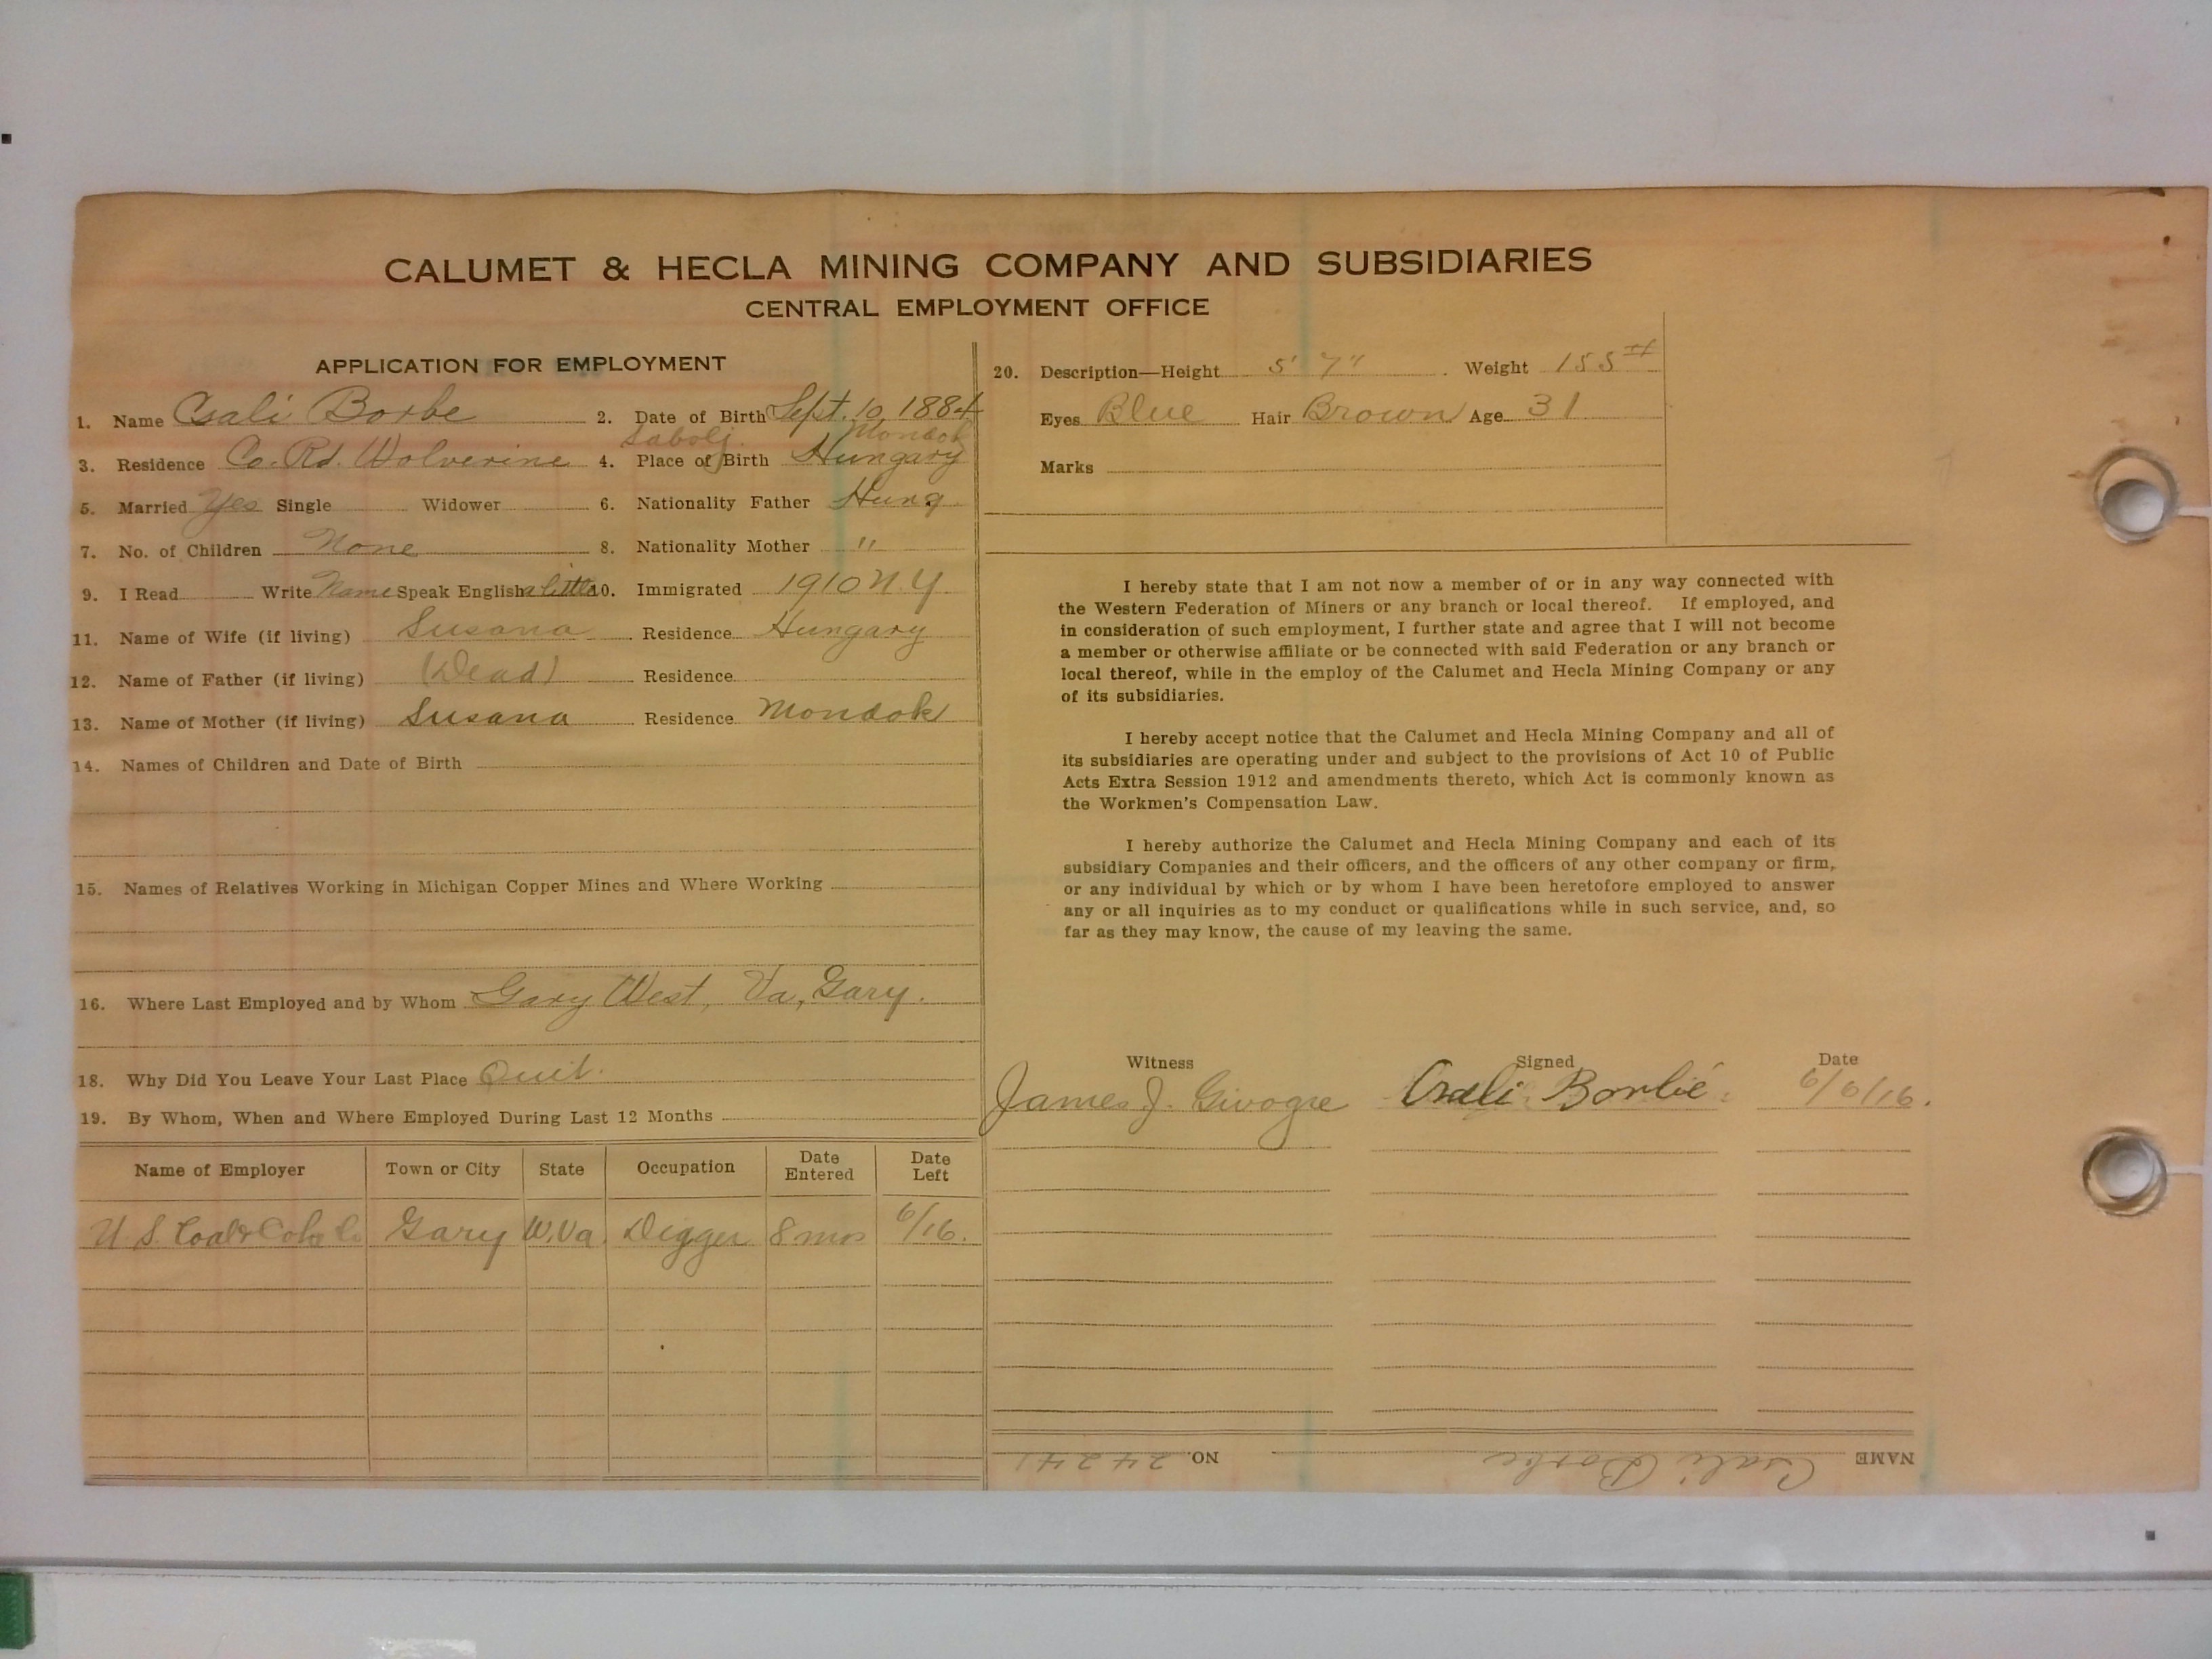 CALUMET & HECLA MINING COMPANY AND SUBSIDIARIES
CENTRAL EMPLOYMENT OFFICE
APPLICATION FOR EMPLOYMENT
1. Name Csali Borbe 2. Date of Birth Sept. 10, 1884
Sabolj. Mondok
3. Residence Co. Rd. Wolverine 4. Place of Birth Hungary
5. Married Yes Single Widower 6. Nationality Father Hung
7. No. of Children None 8. Nationality Mother "
9. I Read Write Name Speak English a little 10. Immigrated 1910 N.Y.
11. Name of Wife (if living) Susana Residence Hungary
12. Name of Father (if living) (Dead) Residence
13. Name of Mother (if living) Susana Residence Mondok
14. Names of Children and Date of Birth
15. Names of Relatives Working in Michigan Copper Mines and Where Working
16. Where Last Employed and by Whom Gary West, Va, Gary.
18. Why Did You Leave Your Last Place Quit.
19. By Whom, When and Where Employed During Last 12 Months
Name of Employer Town or City State Occupation Date Entered Date Left
U.S. Coal & Coke Co Gary W.Va. Digger 8 mos 6/16.
20. Description—Height 5' 7" Weight 155 #
Eyes Blue Hair Brown Age 31
Marks
I hereby state that I am not now a member of or in any way connected with
the Western Federation of Miners or any branch or local thereof. If employed, and
in consideration of such employment, I further state and agree that I will not become
a member or otherwise affiliate or be connected with said Federation or any branch or
local thereof, while in the employ of the Calumet and Hecla Mining Company or any
of its subsidiaries.
I hereby accept notice that the Calumet and Hecla Mining Company and all of
its subsidiaries are operating under and subject to the provisions of Act 10 of Public
Acts Extra Session 1912 and amendments thereto, which Act is commonly known as
the Workmen's Compensation Law.
I hereby authorize the Calumet and Hecla Mining Company and each of its
subsidiary Companies and their officers, and the officers of any other company or firm,
or any individual by which or by whom I have been heretofore employed to answer
any or all inquiries as to my conduct or qualifications while in such service, and, so
far as they may know, the cause of my leaving the same.
Witness Signed Date
James J. Givogre Csali Borbé. 6/6/16.
NAME Csali Borbe NO. 24241